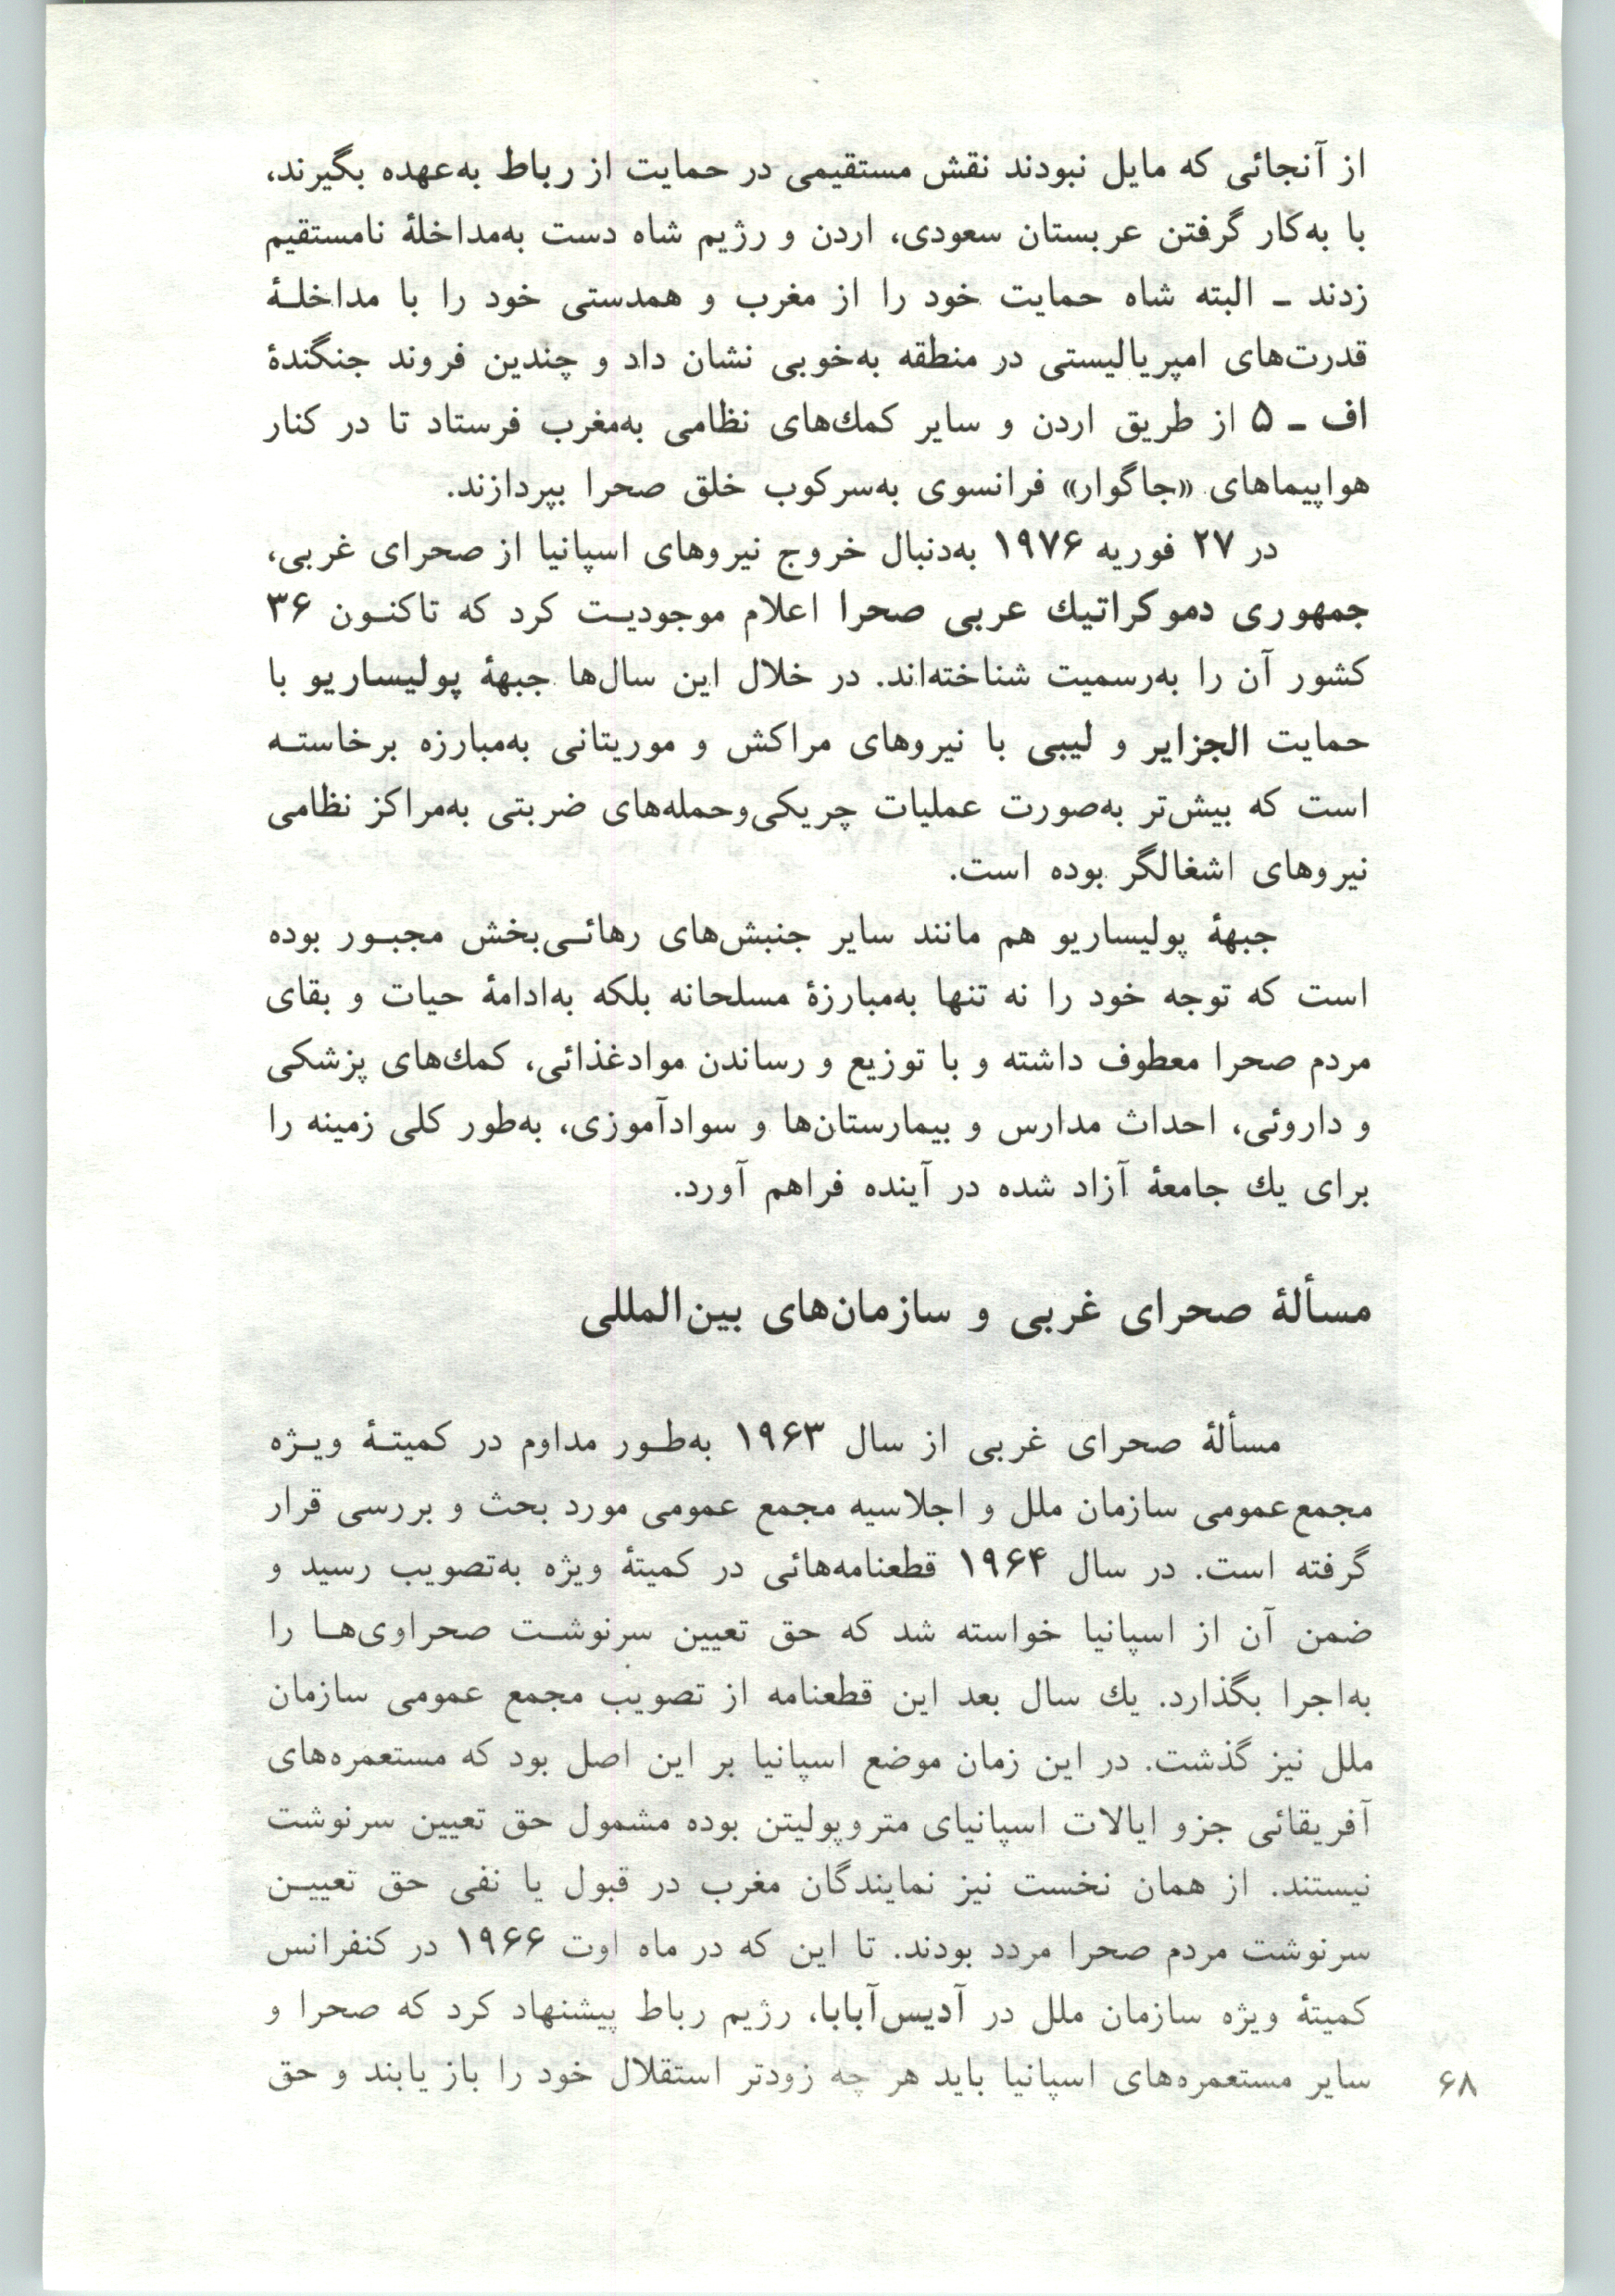 از آنجائی که مایل نبودند نقش مستقیمی در حمایت از رباط به‌عهده بگیرند،
با به‌کار گرفتن عربستان سعودی، اردن و رژیم شاه دست به‌مداخلهٔ نامستقیم
زدند ـ البته شاه حمایت خود را از مغرب و همدستی خود را با مداخلـهٔ
قدرت‌های امپریالیستی در منطقه به‌خوبی نشان داد و چندین فروند جنگندهٔ
اف ـ ۵ از طریق اردن و سایر کمك‌های نظامی به‌مغرب فرستاد تا در کنار
هواپیماهای «جاگوار» فرانسوی به‌سرکوب خلق صحرا بپردازند.
در ۲۷ فوریه ۱۹۷۶ به‌دنبال خروج نیروهای اسپانیا از صحرای غربی،
جمهوری دموکراتیك عربی صحرا اعلام موجودیـت کرد که تاکنـون ۳۶
کشور آن را به‌رسمیت شناخته‌اند. در خلال این سال‌ها جبههٔ پولیساریو با
حمایت الجزایر و لیبی با نیروهای مراکش و موریتانی به‌مبارزه برخاستـه
است که بیش‌تر به‌صورت عملیات چریکی‌وحمله‌های ضربتی به‌مراکز نظامی
نیروهای اشغالگر بوده است.
جبههٔ پولیساریو هم مانند سایر جنبش‌های رهائـی‌بخش مجبـور بوده
است که توجه خود را نه تنها به‌مبارزهٔ مسلحانه بلکه به‌ادامهٔ حیات و بقای
مردم صحرا معطوف داشته و با توزیع و رساندن موادغذائی، کمك‌های پزشکی
و داروئی، احداث مدارس و بیمارستان‌ها و سوادآموزی، به‌طور کلی زمینه را
برای یك جامعهٔ آزاد شده در آینده فراهم آورد.
مسألهٔ صحرای غربی و سازمان‌های بین‌المللی
مسألهٔ صحرای غربی از سال ۱۹۶۳ به‌طـور مداوم در کمیتـهٔ ویـژه
مجمع‌عمومی سازمان ملل و اجلاسیه مجمع عمومی مورد بحث و بررسی قرار
گرفته است. در سال ۱۹۶۴ قطعنامه‌هائی در کمیتهٔ ویژه به‌تصویب رسید و
ضمن آن از اسپانیا خواسته شد که حق تعیین سرنوشـت صحراوی‌هـا را
به‌اجرا بگذارد. یك سال بعد این قطعنامه از تصویب مجمع عمومی سازمان
ملل نیز گذشت. در این زمان موضع اسپانیا بر این اصل بود که مستعمره‌های
آفریقائی جزو ایالات اسپانیای متروپولیتن بوده مشمول حق تعیین سرنوشت
نیستند. از همان نخست نیز نمایندگان مغرب در قبول یا نفی حق تعییـن
سرنوشت مردم صحرا مردد بودند. تا این که در ماه اوت ۱۹۶۶ در کنفرانس
کمیتهٔ ویژه سازمان ملل در آدیس‌آبابا، رژیم رباط پیشنهاد کرد که صحرا و
سایر مستعمره‌های اسپانیا باید هر چه زودتر استقلال خود را باز یابند و حق
۶۸